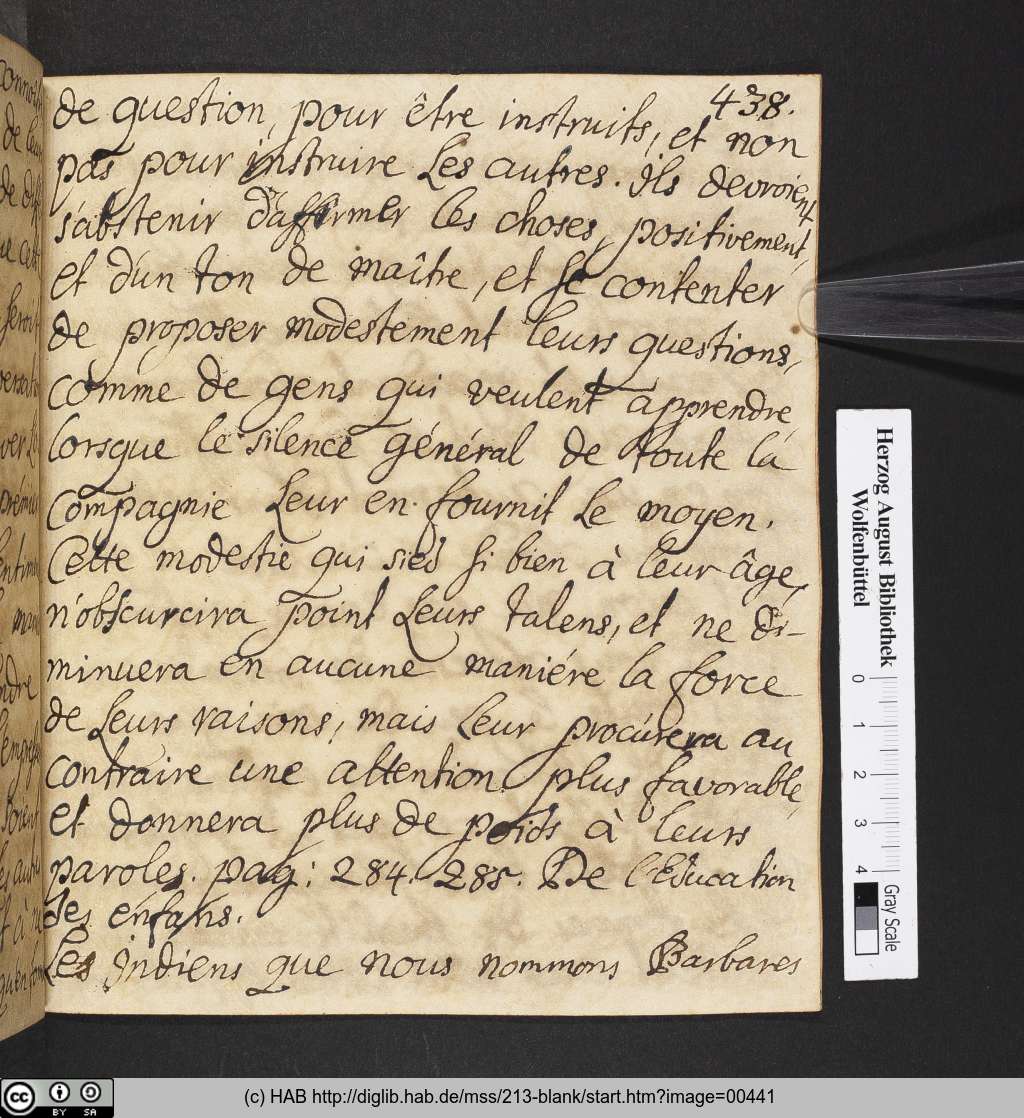 438.
de question, pour être instruits, et non
pas pour instruire Les autres. ils devroient
s'abstenir d'affirmer les choses, positivement,
et d'un ton de maître, et se contenter
de proposer modestement leurs questions,
comme de gens qui veulent apprendre
lorsque le silence général de toute la
Compagnie Leur en fournit Le moyen.
Cette modestie qui sied si bien à leur âge,
n'obscurcira point Leurs talens, et ne di-
minuera en aucune maniére la force
de Leurs raisons, mais leur procurera au
contraire une attention plus favorable,
et donnera plus de poids à leurs
paroles. pag: 284. 285. De l'Education
des enfans.
Les Indiens que nous nommons Barbares
Herzog August Bibliothek
Wolfenbüttel
0 1 2 3 4
Gray Scale
cc BY SA
(c) HAB http://diglib.hab.de/mss/213-blank/start.htm?image=00441